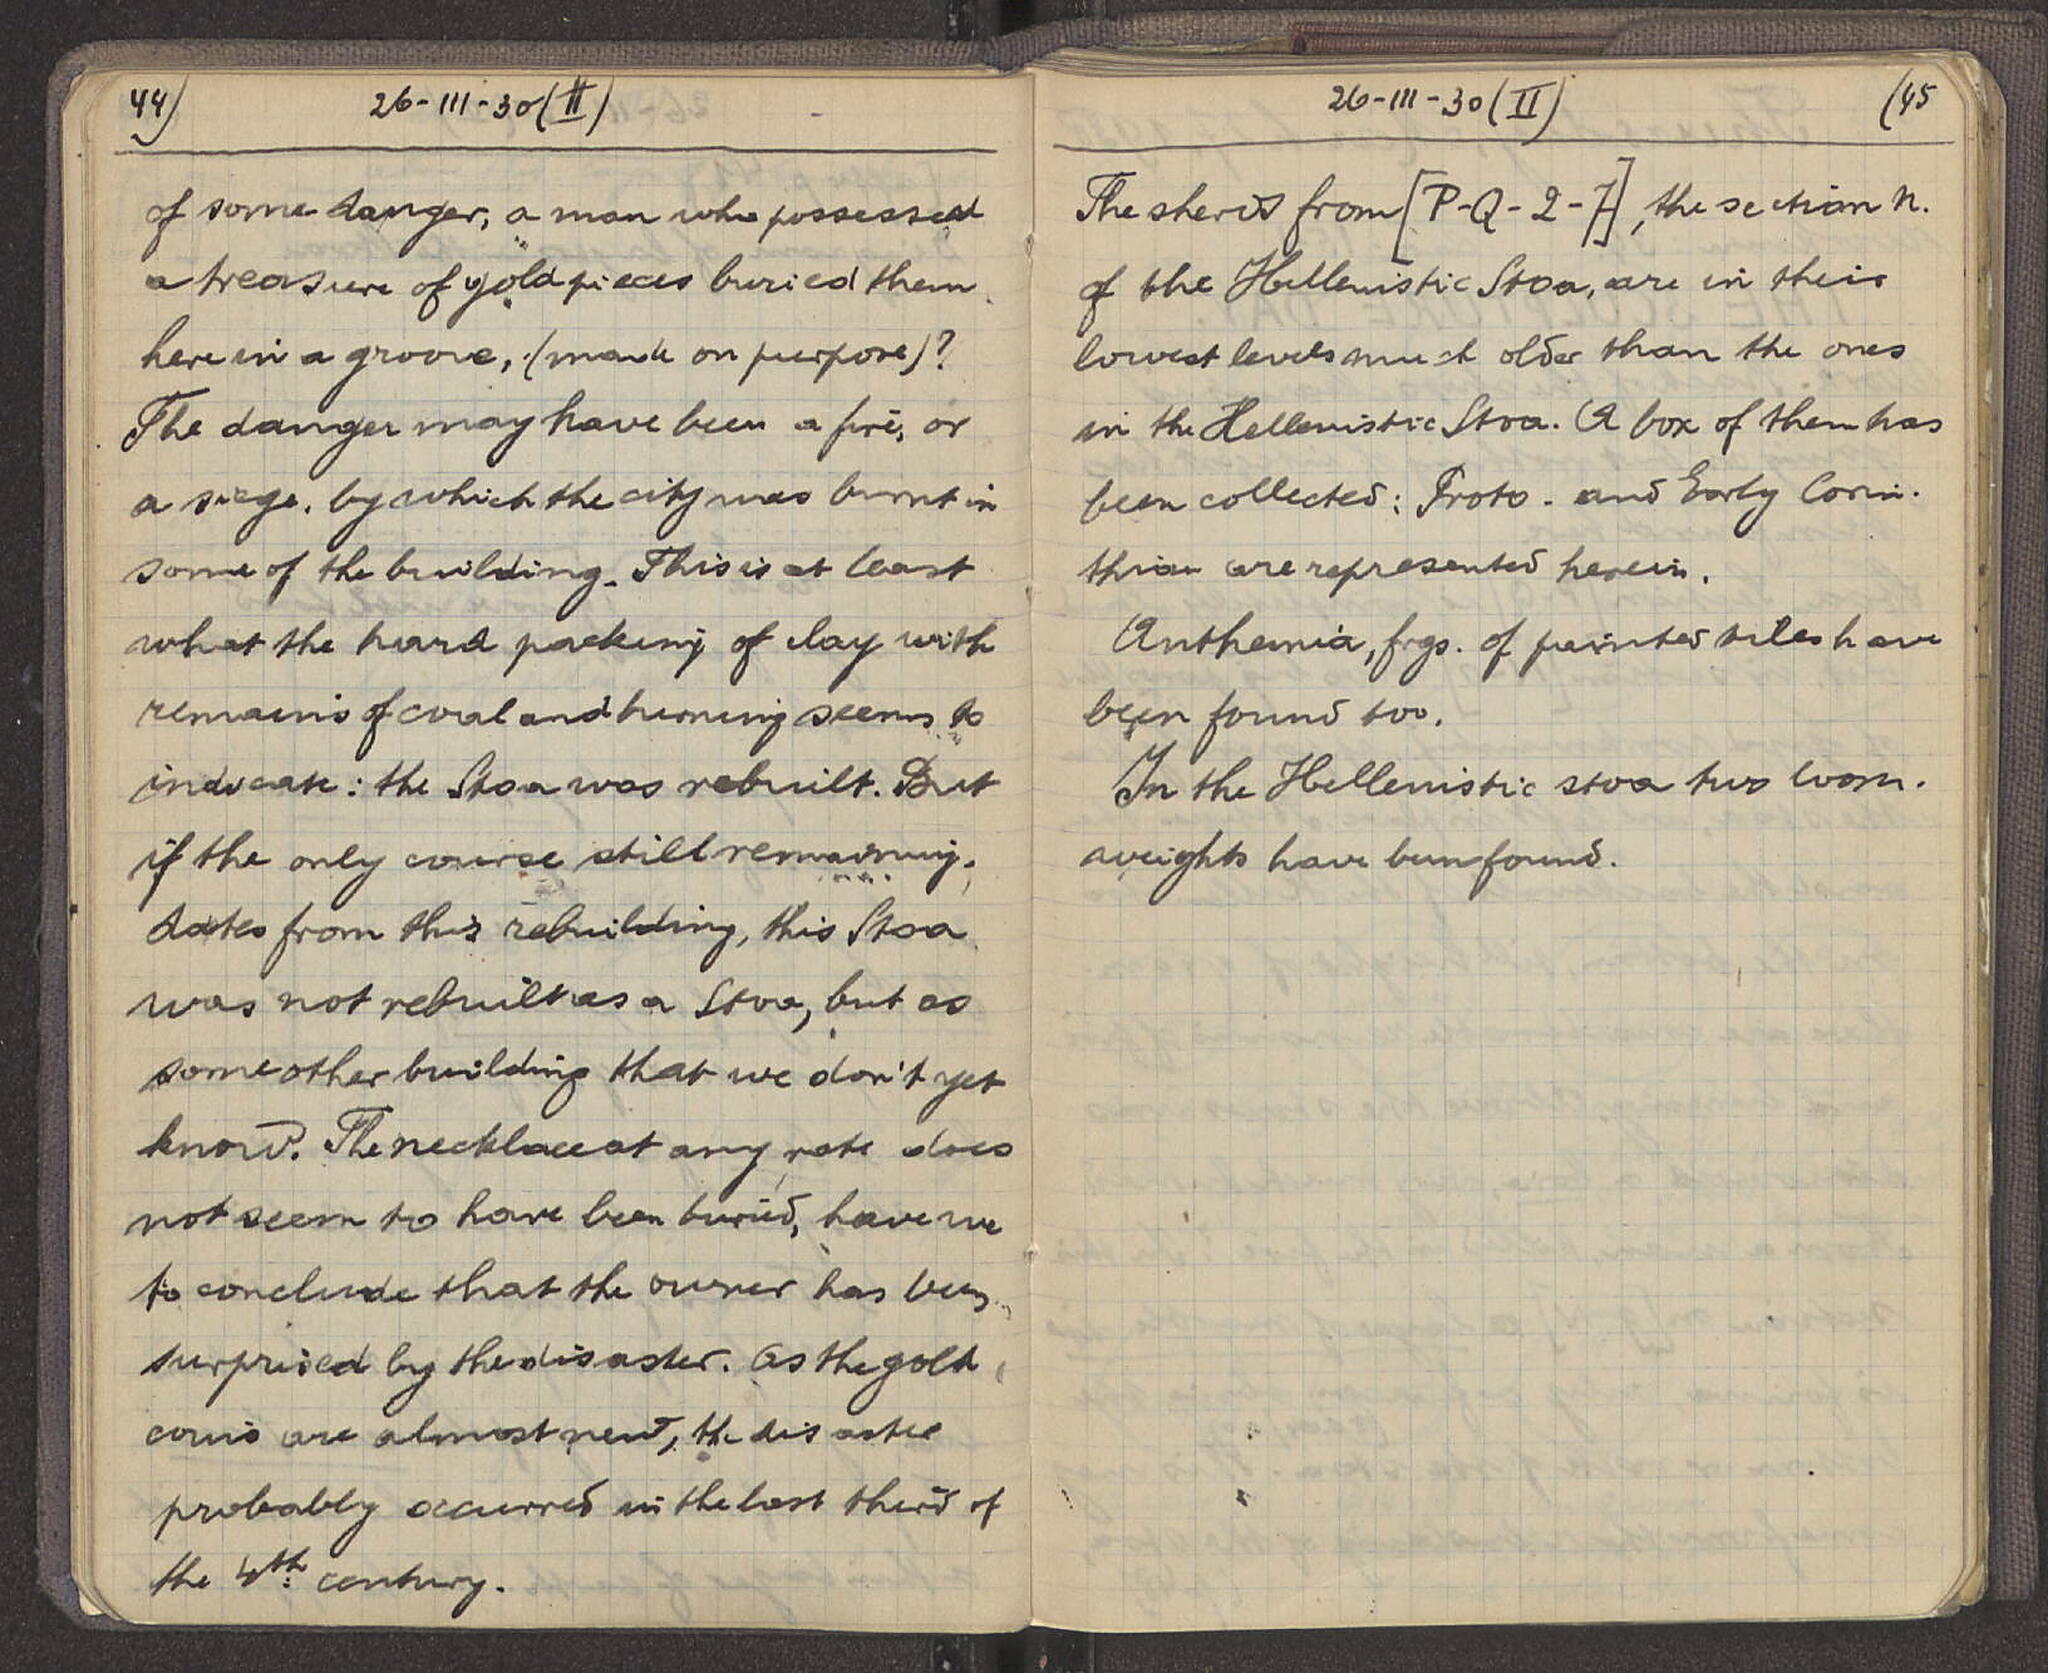 44)
26-III-30 (II)
of some danger, a man who possessed
a treasure of gold pieces buried them
here in a groove, (made on purpose)?
The danger may have been a fire, or
a siege, by which the city was burnt in
some of the building. This is at least
what the hard packing of clay with
remains of coal and burning seems to
indicate: the Stoa was rebuilt. But
if the only course still remaining,
dates from this rebuilding, this Stoa
was not rebuilt as a Stoa, but as
some other building that we don't yet
know. The necklace at any rate does
not seem to have been buried, have we
to conclude that the owner has been
surprised by the disaster. As the gold
coins are almost new, the disaster
probably occurred in the last third of
the 4th century.
26-III-30 (II)
(45
The sherds from [P-Q-2-7], the section N.
of the Hellenistic Stoa, are in their
lowest levels much older than the ones
in the Hellenistic Stoa. A box of them has
been collected: Proto- and Early Corin-
thian are represented herein.
Anthemia, frgs. of painted tiles have
been found too.
In the Hellenistic stoa two loom-
weights have been found.